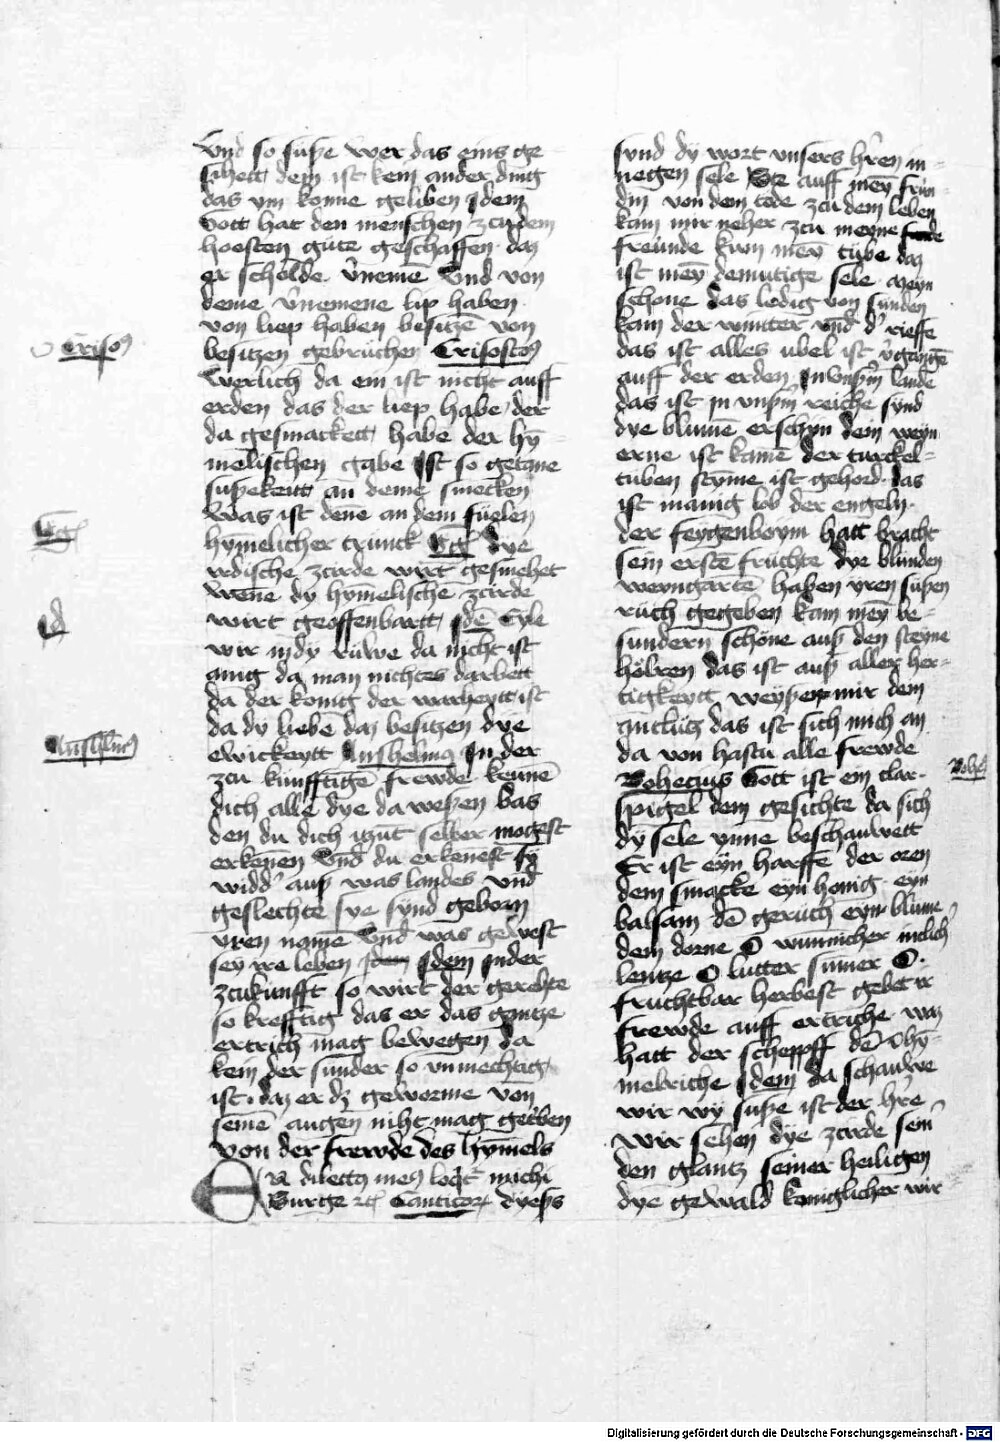 Und so suße wer das eins ge-
schett dem ist kein ander ding
das ym konne geliben Idem
Gott hat den menschen zcu dem
hoesten gute geschaffen daz
er scholde v̄nemē Und von
deme v̄nemene lip haben
von liep haben besitzē von
besitzen gebrüchen Crisostoꝰ
Werlich da ein ist nicht auff
erden das der liep habe der
da gesmackett habe der hȳ-
melischen gabe Ist so getane
sußekeitt an deme smecken
Was ist dene an dem füelen
hȳmelicher trunck Gg̃ dye
irdische zcirde wirt gesmehet
wene dy hymelischē zcirde
wirt geoffenbartt Idē Eyle
wir in dy rüwe da nicht ist
da man nichtes darbett
da der konig der warheytt ist
da dy liebē daz besitzen dye
ewickeytt Anshelmꝰ In der
zcu kunfftigē frewde kennē
dich alle dye da weßen bas
den du dich itzüt selber mogest
erkenen Und du erkenest sy
widd' auß was landes und
geslechte sye synd geborn
yren nomē Und was gewest
sey ire leben Idem In der
zcukunfft so wirt der gerechte
so krefftig das er das gantze
ertrich mag bewegen da
kein der sunder so unmechtig
ist daz er dz geworme von
seinē augen niht mag getriben
von der frewde des hȳmels
En dilectꝰ meꝰ loqt' michi
Surge ⁊c Canticoꝝ dyeß
synd dy wort unsers hr̄en in-
negen sele Ste auff meȳ frun-
din von dem tode zcu dem leben
kam mir neher zcu meyne
freunde kum meȳ tube daz
ist meȳ demutige sele meyn
schone das ledig von sunden
kam der winter und d' rieffe
das ist alles ubel ist v̄gangē
auff der erden In unßm̄ lande
das ist in unßm̄ reiche synd
dye blumē erschyn dein weyn
erne ist kamē der turckel-
tuben stȳme ist gehord das
ist manig lob der engeln
der feygenboym hatt bracht
sein erstē früchte dye blunden
weyngartē haben yren sußen
rüch gegeben kam meȳ be-
sundern schöne auß den steyne
hölren das ist auß aller her-
tigkeytt weyßen mir dem
antlütz das ist sich mich an
da von hastu alle frewde
Bohecius Gott ist ein clar
spigel dem gesichte da sich
dy sele ynne beschauwett
Er ist eyn harffe der oren
dem smacke eyn honig eyn
balsam dē geruch eym blume
dem dorne O wunnicher
lentze O lutter sumer O
fruchtbar herbest gebet ir
frewde auff ertriche waz
hatt der scheppff dē hȳ-
melriche Idem da schauwe
wir wy suße ist der hr̄e
Wir sehen dye zcirde sein
den glantz seiner heiligen
dye gewald koniglicher wir
Crisoꝰ
Gg̃
Id
Anshelmꝰ
Bohe
Digitalisierung gefördert durch die Deutsche Forschungsgemeinschaft - DFG